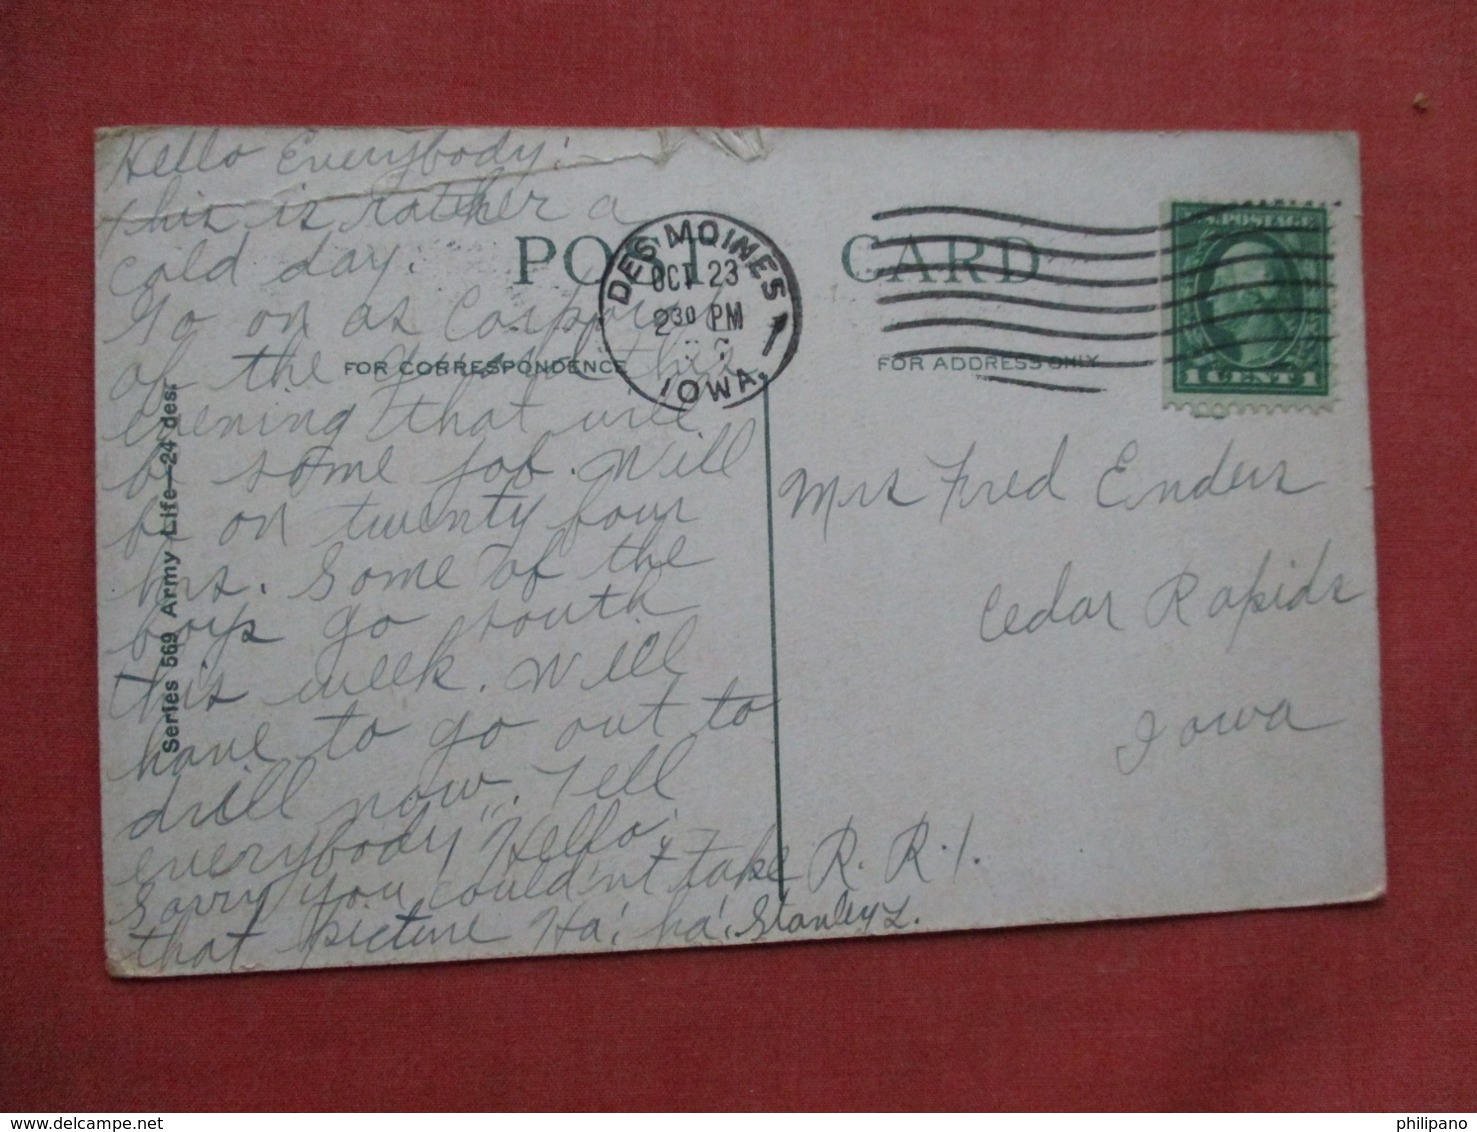 Hello Everybody:
this is rather a
cold day.
Go on as Corporal
of the guard this
evening that will
be some job. Will
be on twenty four
hrs. Some of the
boys go south
this week. Will
have to go out to
drill now. Tell
everybody "Hello."
Sorry you couldn't take
that picture Ha! ha! Stanley L.
POST CARD
FOR CORRESPONDENCE
FOR ADDRESS ONLY
Series 569 Army Life—24 des.
DES MOINES
OCT 23
2 30 PM
IOWA.
U.S. POSTAGE
1 CENT 1
Mrs Fred Enders
Cedar Rapids
Iowa
R. R. 1.
philipano
delcampe.net